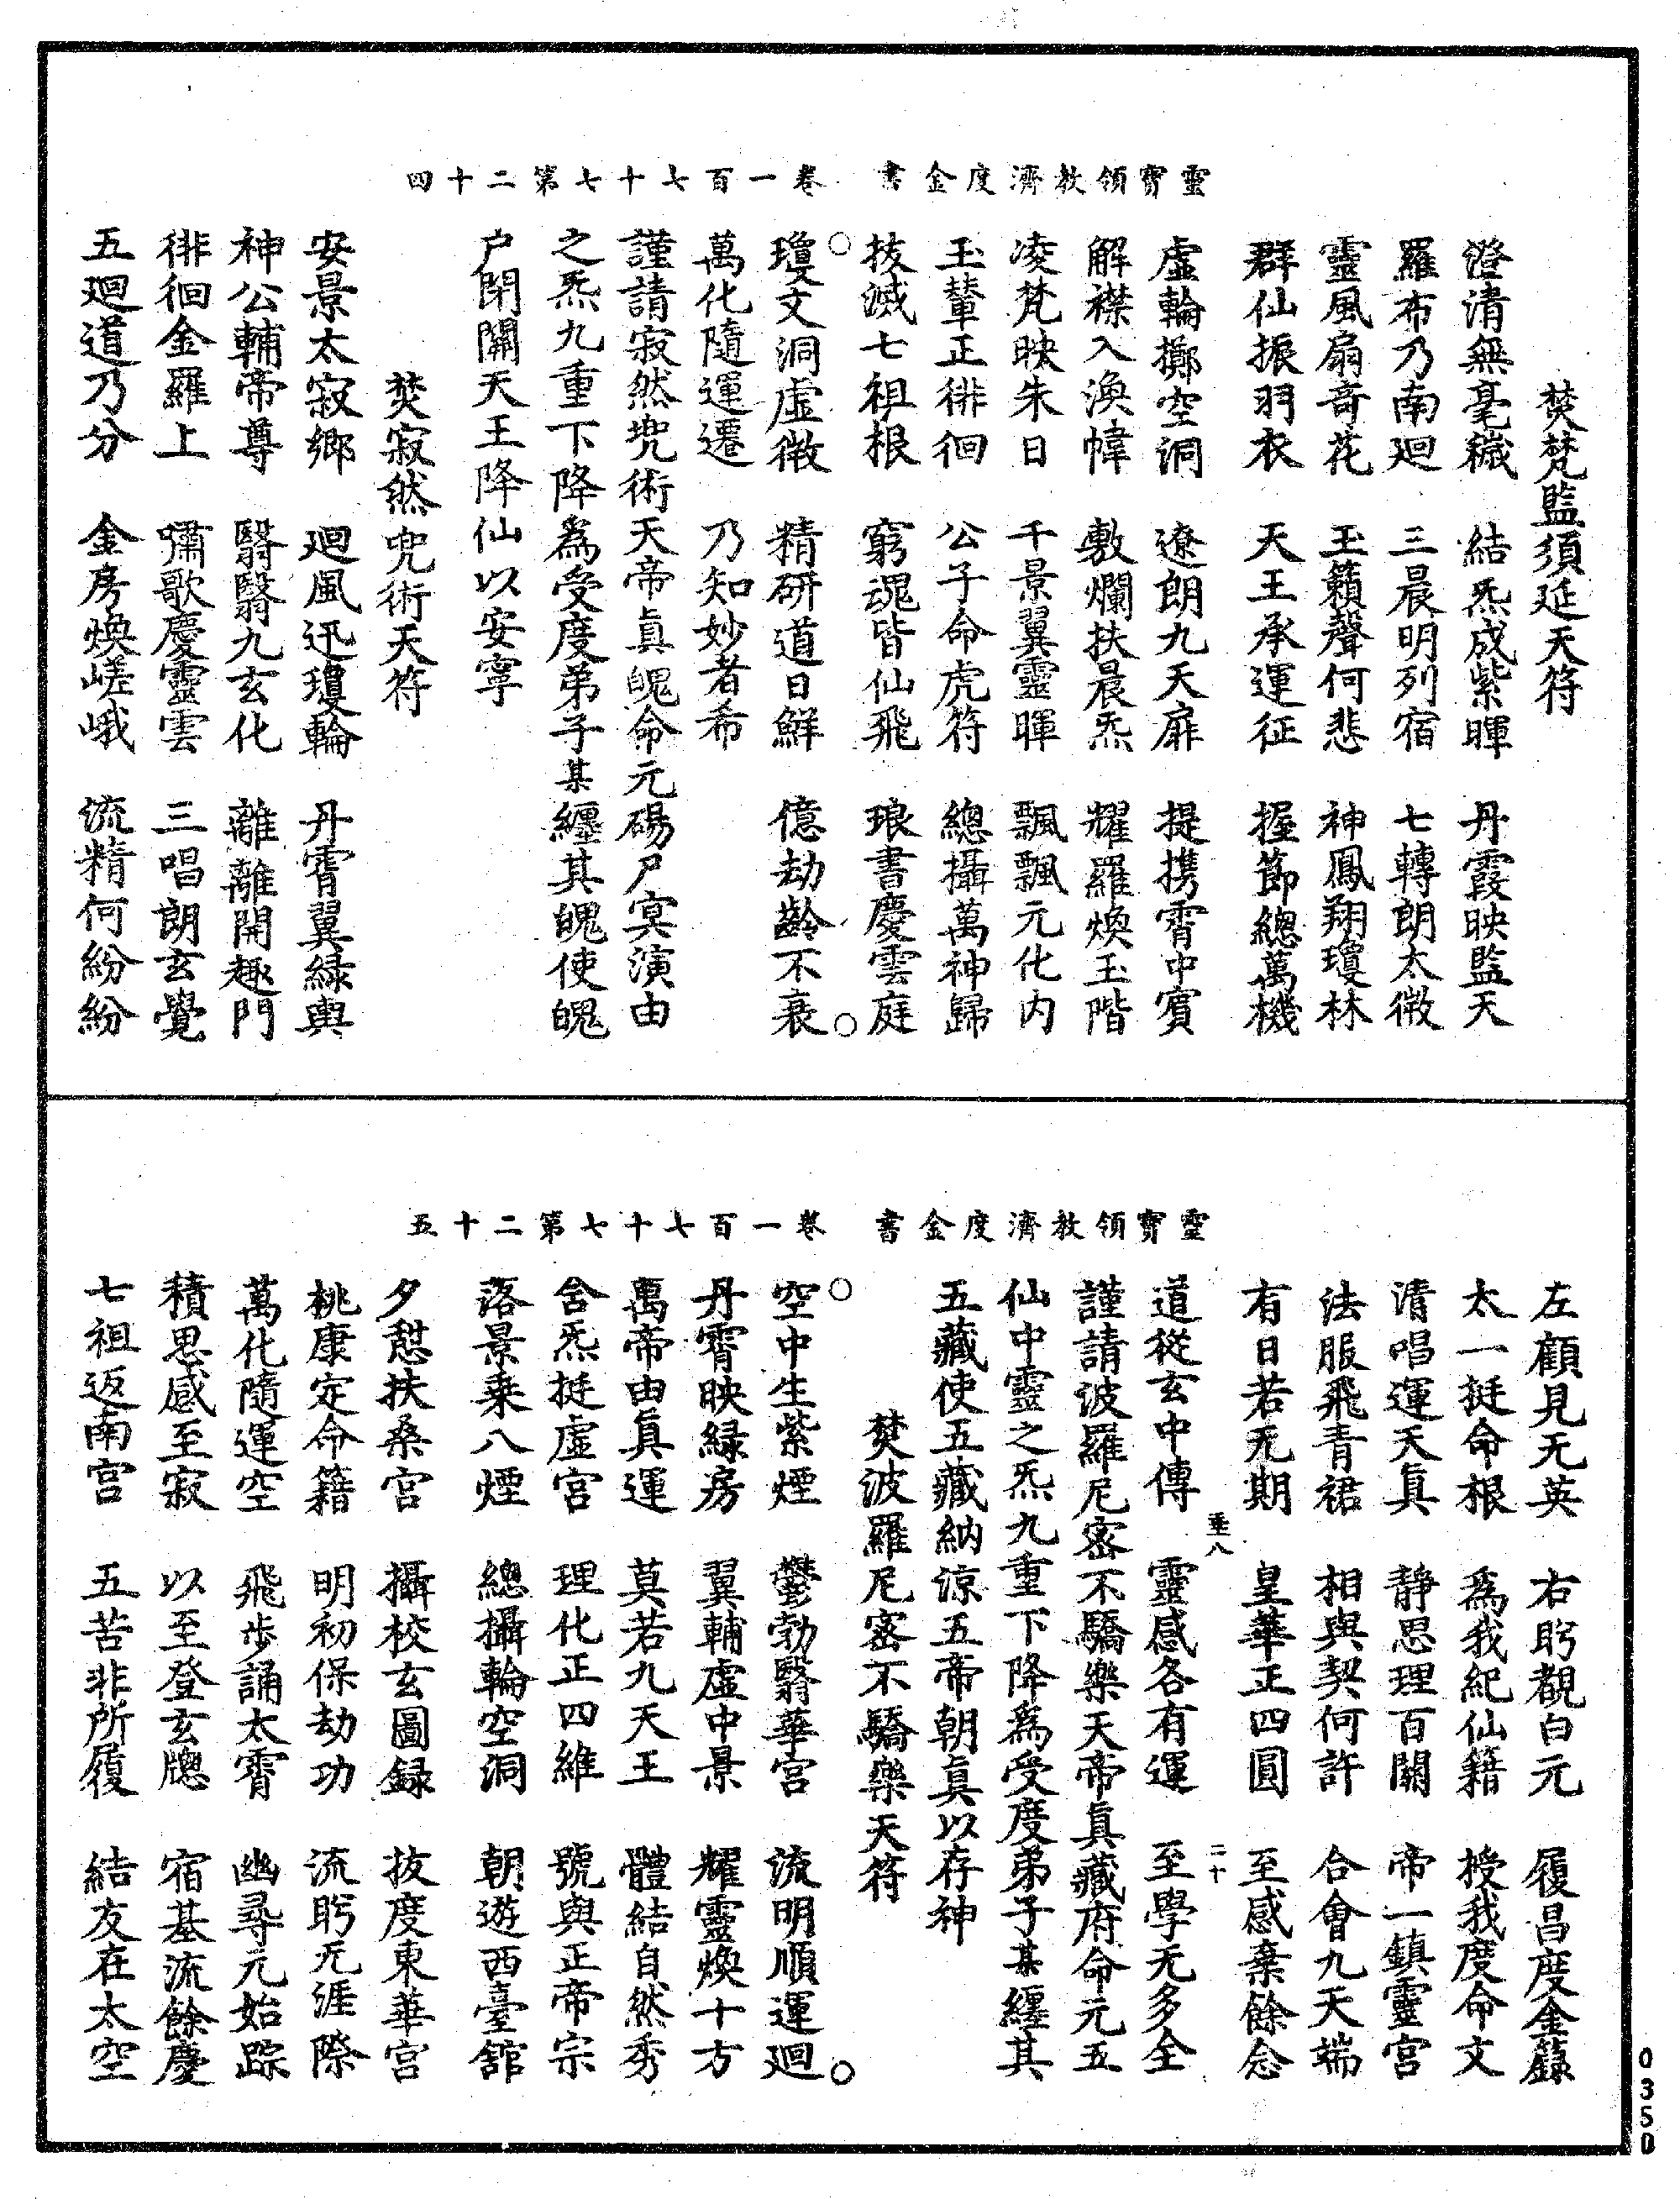 靈寶領教濟度金書　卷一百七十七第二十四
焚梵監須延天符
澄清無毫穢　結炁成紫暉　丹霞映監天
羅布乃南廻　三晨明列宿　七轉朗太微
靈風扇奇花　玉籟聲何悲　神鳳翔瓊林
群仙振羽衣　天王承運征　握節總萬機
虛輪擲空洞　遼朗九天扉　提攜霄中賓
解襟入渙幃　敷爛扶晨炁　耀羅煥玉階
凌梵映朱日　千景翼靈暉　飄飄元化内
玉輦正徘徊　公子命虎符　總攝萬神歸
拔滅七祖根　窮魂皆仙飛　琅書慶雲庭
○瓊文洞虛微　精研道日鮮　億劫齡不衰○
萬化隨運遷　乃知妙者希
謹請寂然兜術天帝眞魄命元碭尸冥演由
之炁九重下降爲受度弟子某纏其魄使魄
户閉關天王降仙以安寧
焚寂然兜術天符
安景太寂鄉　廻風迅瓊輪　丹霄翼緑輿
神公輔帝尊　翳翳九玄化　離離開趣門
徘徊金羅上　嘯歌慶靈雲　三唱朗玄覺
五廻道乃分　金房煥嵯峨　流精何紛紛
靈寶領教濟度金書　卷一百七十七第二十五
左顧見无英　右眄觀白元　履昌度金籙
太一挺命根　爲我紀仙籍　授我度命文
清唱運天眞　靜思理百關　帝一鎮靈宮
法服飛青裙　相與契何許　合會九天端
有日若无期　皇華正四圓　至感棄餘念
垂八　二十
道從玄中傳　靈感各有運　至學无多全
謹請波羅尼密不驕樂天帝眞藏府命元五
仙中靈之炁九重下降爲受度弟子某纏其
五藏使五藏納涼五帝朝眞以存神
焚波羅尼密不驕樂天符
○空中生紫煙　鬱勃翳華宮　流明順運廻○
丹霄映緑房　翼輔虛中景　耀靈煥十方
禹帝由眞運　莫若九天王　體結自然秀
含炁挺虛宮　理化正四維　號與正帝宗
落景乘八煙　總攝輪空洞　朝遊西臺館
夕憇扶桑宮　攝校玄圖録　拔度東華宮
桃康定命籍　明初保劫功　流眄无涯際
萬化隨運空　飛步誦太霄　幽尋元始蹤
積思感至寂　以至登玄牕　宿基流餘慶
七祖返南宮　五苦非所履　結友在太空
0350